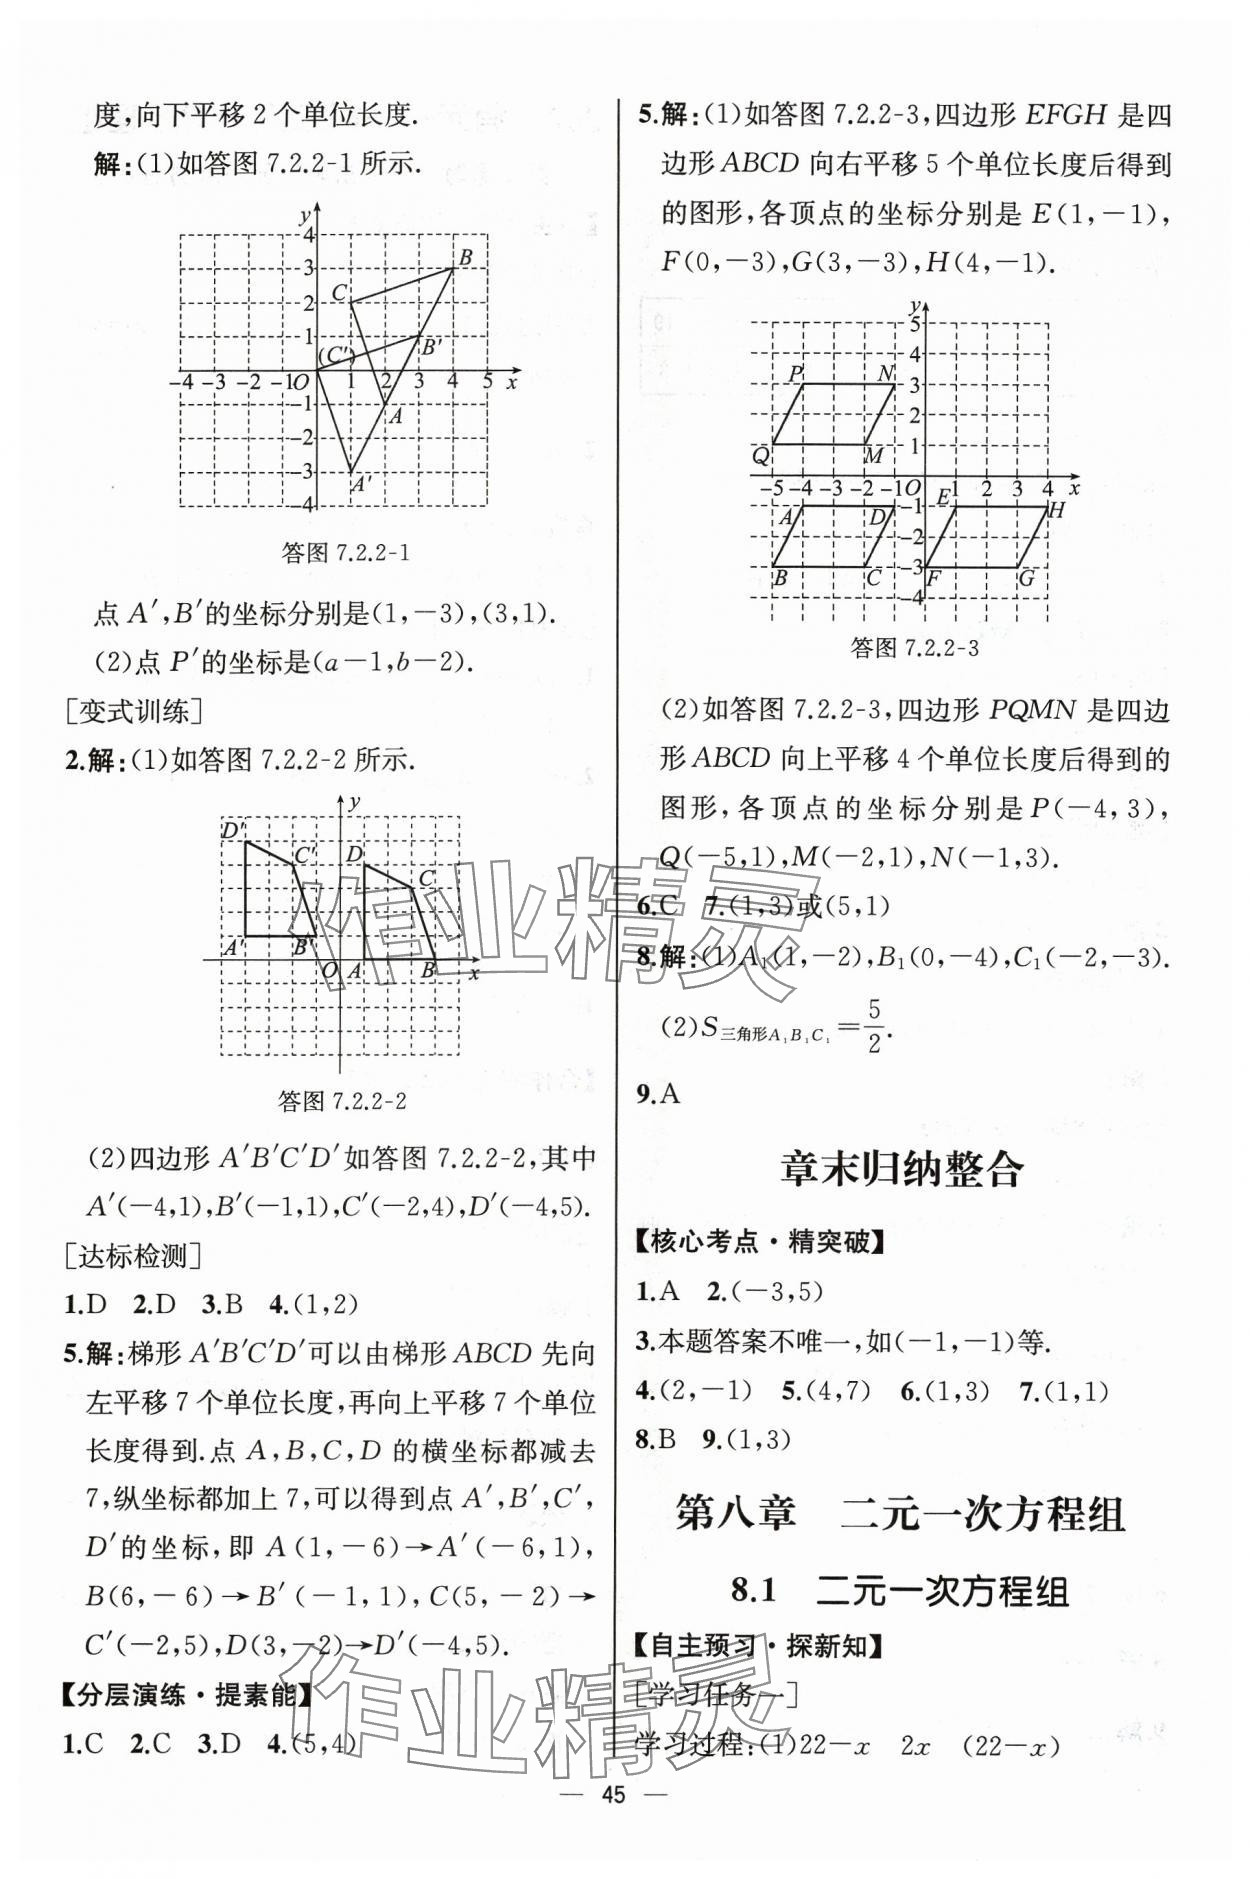 度,向下平移2个单位长度.
解:(1)如答图7.2.2-1所示.
y
4
3
2
1
B
C
B′
(C′)
-4 -3 -2 -1 O 1 2 3 4 5 x
-1
-2
-3
-4
A
A′
答图7.2.2-1
点A′,B′的坐标分别是(1,-3),(3,1).
(2)点P′的坐标是(a-1,b-2).
[变式训练]
2.解:(1)如答图7.2.2-2所示.
y
D′
C′
D
C
A′
B′
O A B x
答图7.2.2-2
(2)四边形A′B′C′D′如答图7.2.2-2,其中
A′(-4,1),B′(-1,1),C′(-2,4),D′(-4,5).
[达标检测]
1.D 2.D 3.B 4.(1,2)
5.解:梯形A′B′C′D′可以由梯形ABCD先向
左平移7个单位长度,再向上平移7个单位
长度得到.点A,B,C,D的横坐标都减去
7,纵坐标都加上7,可以得到点A′,B′,C′,
D′的坐标,即A(1,-6)→A′(-6,1),
B(6,-6)→B′(-1,1),C(5,-2)→
C′(-2,5),D(3,-2)→D′(-4,5).
【分层演练·提素能】
1.C 2.C 3.D 4.(5,4)
5.解:(1)如答图7.2.2-3,四边形EFGH是四
边形ABCD向右平移5个单位长度后得到
的图形,各顶点的坐标分别是E(1,-1),
F(0,-3),G(3,-3),H(4,-1).
y
5
4
3
2
1
P
N
Q
M
-5 -4 -3 -2 -1 O 1 2 3 4 x
-1
-2
-3
-4
A
D
E
H
B
C
F
G
答图7.2.2-3
(2)如答图7.2.2-3,四边形PQMN是四边
形ABCD向上平移4个单位长度后得到的
图形,各顶点的坐标分别是P(-4,3),
Q(-5,1),M(-2,1),N(-1,3).
6.C 7.(1,3)或(5,1)
8.解:(1)A₁(1,-2),B₁(0,-4),C₁(-2,-3).
(2)S三角形A₁B₁C₁=5/2.
9.A
章末归纳整合
【核心考点·精突破】
1.A 2.(-3,5)
3.本题答案不唯一,如(-1,-1)等.
4.(2,-1) 5.(4,7) 6.(1,3) 7.(1,1)
8.B 9.(1,3)
第八章 二元一次方程组
8.1 二元一次方程组
【自主预习·探新知】
[学习任务一]
学习过程:(1)22-x 2x (22-x)
— 45 —
作业精灵
作业精灵